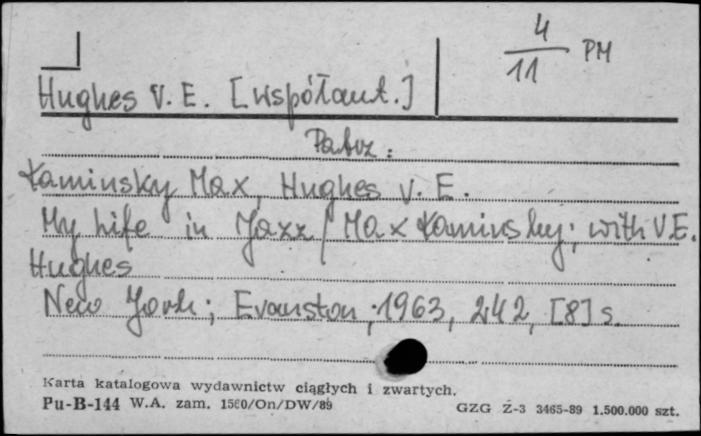 4/11 PM
Hughes V. E. [współaut.]
Patrz:
Kaminsky Max, Hughes V. E.
My life in Jazz / Max Kaminsky; with V.E.
Hughes
New York; Evanston, 1963, 242, [8] s.
Karta katalogowa wydawnictw ciągłych i zwartych.
Pu-B-144 W.A. zam. 1560/On/DW/89 GZG Z-3 3465-89 1.500.000 szt.